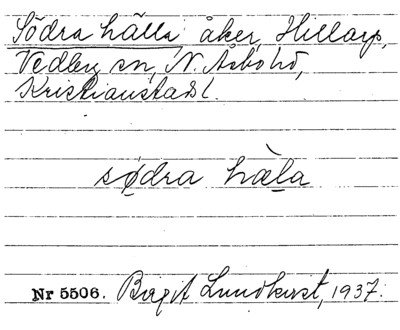 Södra hälla åker, Hillarp,
Vedby sn, N. Åsbo hd,
Kristianstads l.
sødra hæ̀la
Nr 5506. Birgit Lundkvist, 1937.